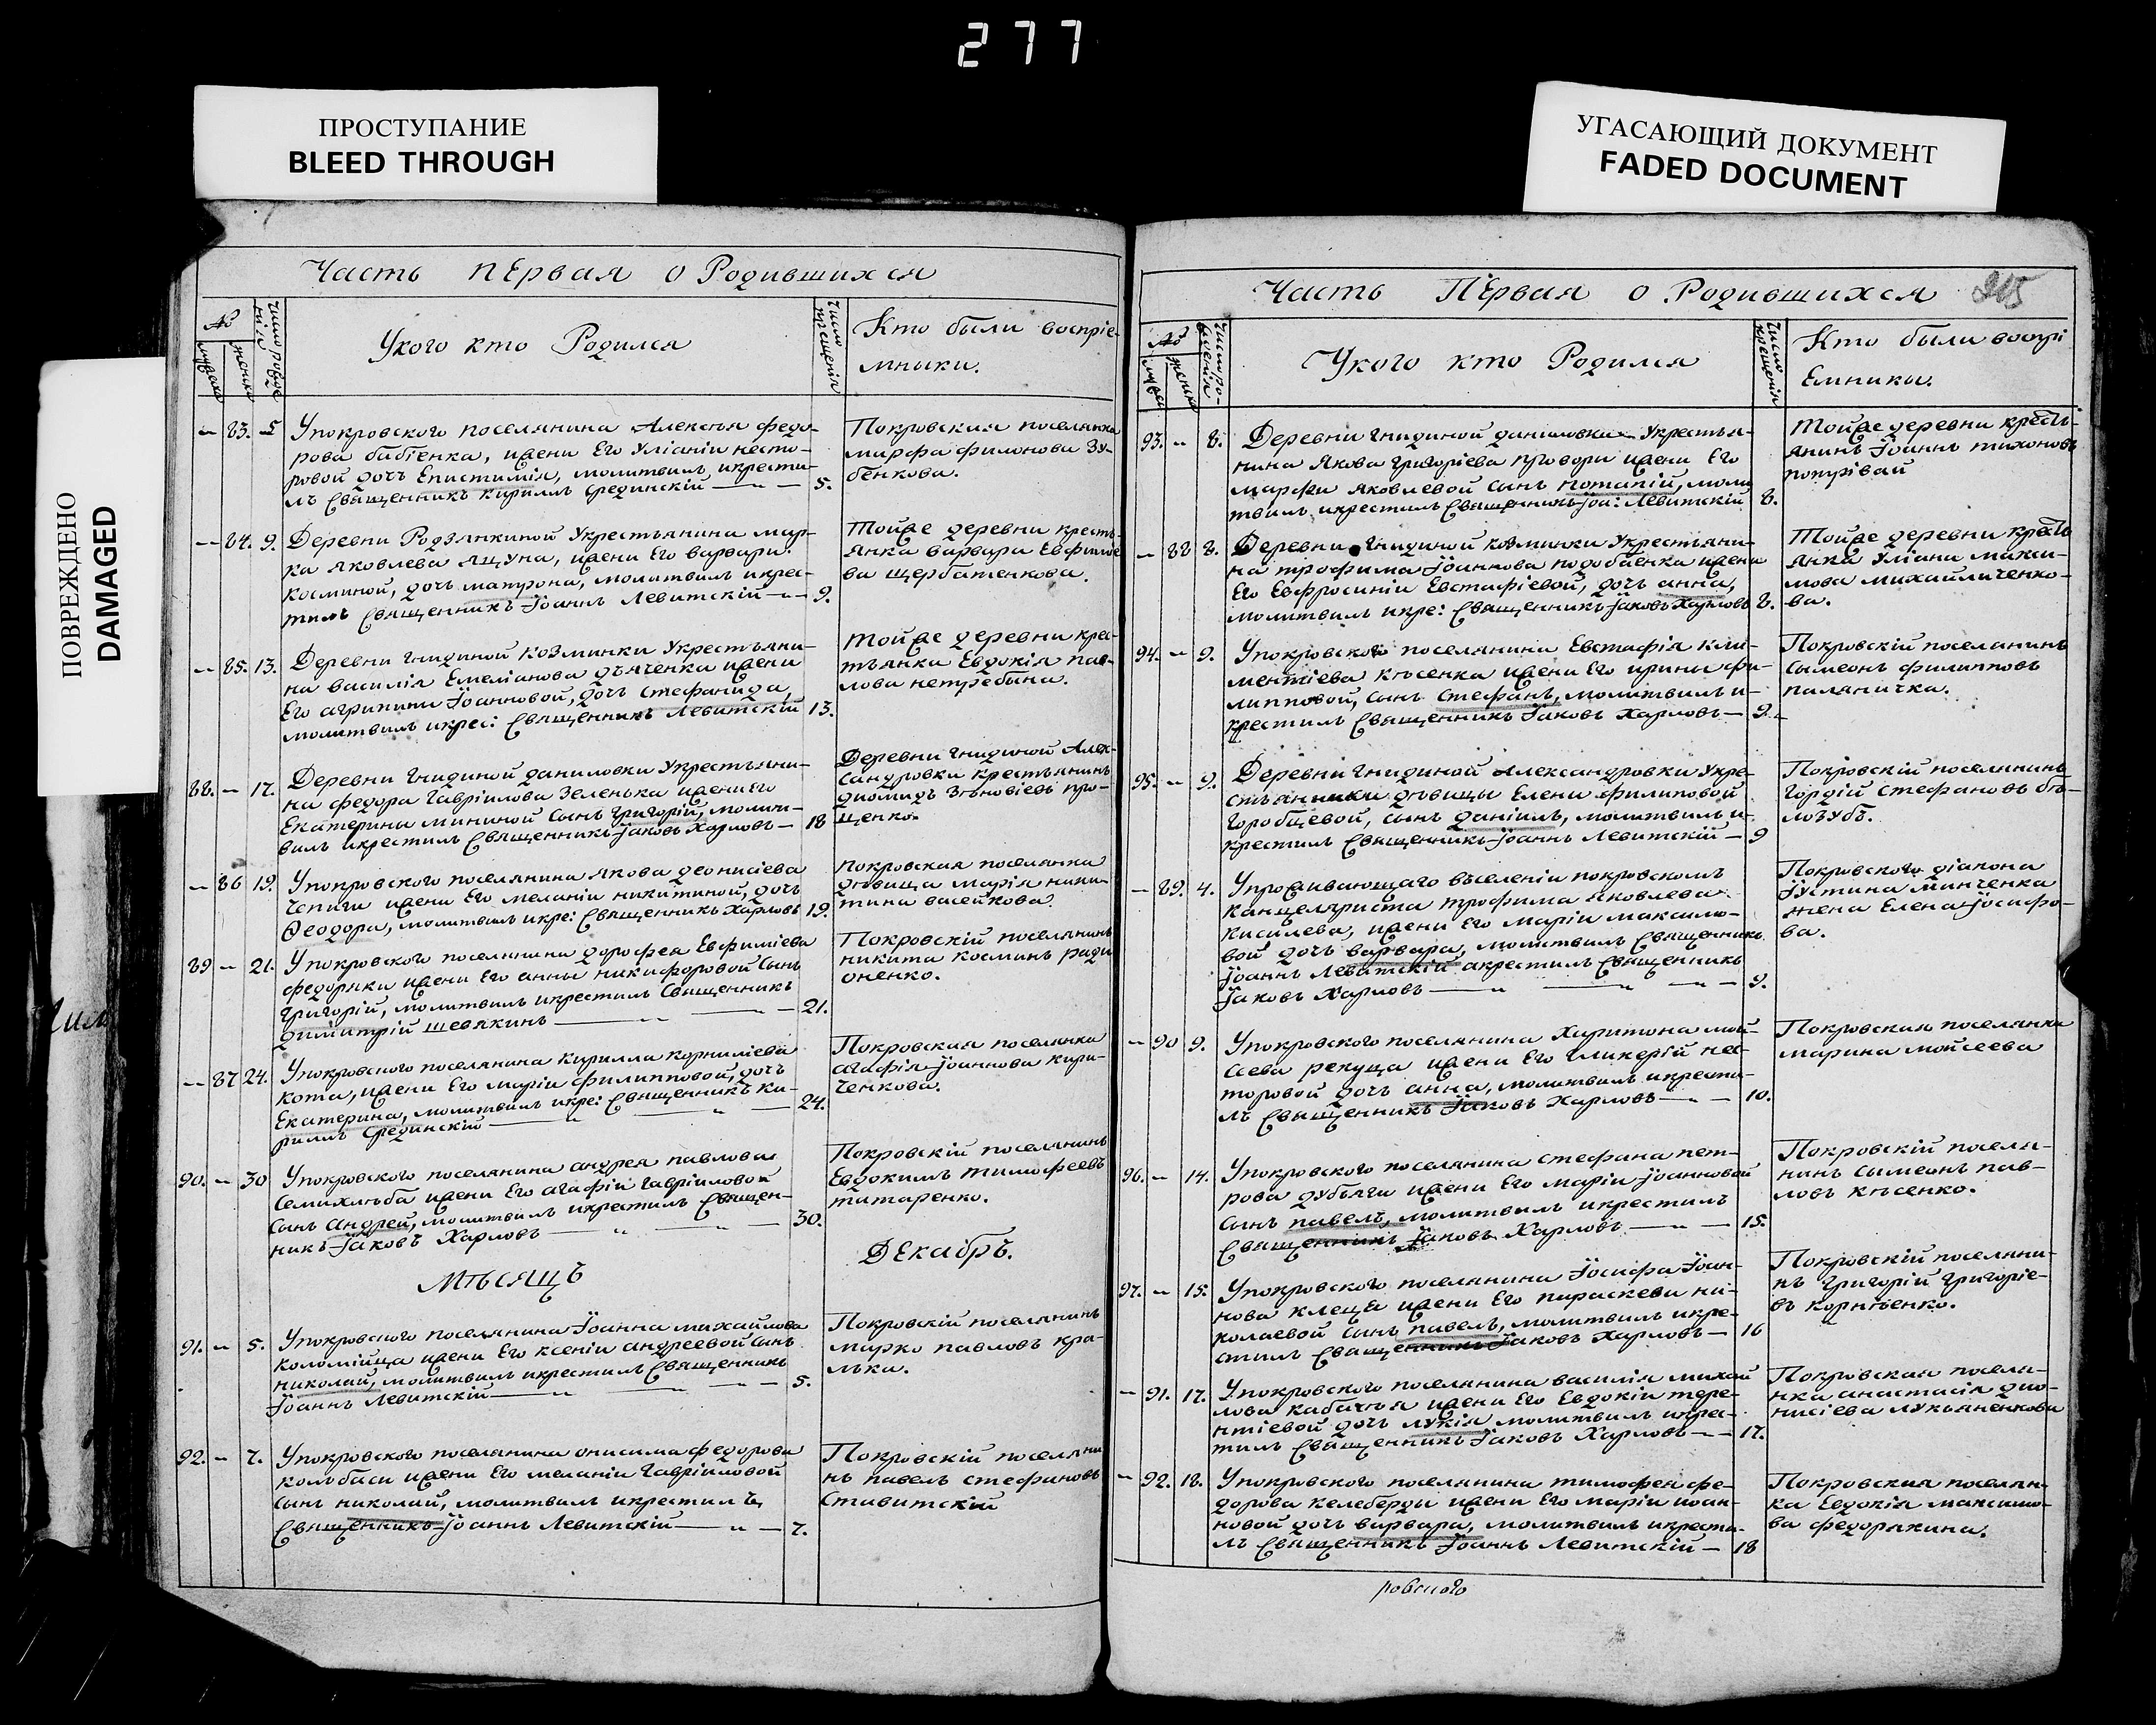 277
ПРОСТУПАНИЕ
BLEED THROUGH
УГАСАЮЩИЙ ДОКУМЕНТ
FADED DOCUMENT
ПОВРЕЖДЕНО
DAMAGED
Часть первая о Родившихся
№
мужеска
женска
число рожде
нія
Укого кто Родился
число
крещенія
Кто были воспріе-
мники.
— 83. 5 Упокровского поселянина Алексея федо-
рова бабіенка, жены Его Уліаніи несто-
ровой дочь Епистимія, молитвилъ икрести-
лъ Священникъ кирилъ Срединскій — 5.
Покровская поселянка
марфа филонова Зу-
бенкова.
— 84. 9. Деревни Родзянкиной Укрестьянина мар-
ка яковлева ящуна, жены Его варвари
косминой, дочь матрона, молитвилъ икрес-
тилъ Священникъ Іоаннъ Левитскій — 9.
Тойже деревни кресть-
янка варвара Евфиміе
ва щербатенкова.
— 85. 13. Деревни гнидиной козминки Укрестьяни-
на василія Емеліанова дьяченка жены
Его агрипини Іоанновой, дочь стефанида,
молитвилъ икрес: Священникъ Левитскій 13.
Тойже деревни крес-
тьянка Евдокія пав-
лова нетребына.
88. — 17. Деревни гнидиной даниловки Укрестьяни-
на федора гавріилова Зеленька жены Его
Екатерины мининой сынъ григорій, молит-
вилъ икрестилъ Священникъ Іаковъ Харловъ — 18
Деревни гнидиной Алек-
сандровки крестьянинъ
диомидъ Зѣновіевъ про-
щенко.
— 86 19. Упокровского поселянина якова деонисіева
чепиги жены Его меланіи никитиной, дочь
Феодора, молитвилъ икре: Священникъ Харловъ 19.
покровская поселянка
дѣвица марія ники-
тина васейкова.
89 — 21. Упокровского поселянина дорофея Евфиміева
федоряки жены Его анны никифоровой сынъ
григорій, молитвилъ икрестилъ Священникъ
димитрій шевякинъ — 21.
Покровскій поселянинъ
никита косминъ ради
оненко.
— 87 24. Упокровского поселянина кирилла корниліева
кота, жены Его маріи филипповой, дочь
Екатерина, молитвилъ икре: Священникъ ки-
рилъ Срединскій — 24.
Покровская поселянка
агафія Іоаннова кири-
ченкова.
90. — 30 Упокровского поселянина андрея павлова
Семихлѣба жены Его агафіи гавріиловой
сынъ андрей, молитвилъ икрестилъ Священ-
никъ Іаковъ Харловъ — 30.
Покровскій поселянинъ
Евдокимъ тимофеевъ
татаренко.
Мѣсяцъ
Декабрь.
91. — 5. Упокровского поселянина Іоанна михайлова
коломійца жены Его ксеніи андреевой сынъ
николай, молитвилъ икрестилъ Священникъ
Іоаннъ Левитскій — 5.
Покровскій поселянинъ
марко павловъ кра-
лька.
92. — 7. Упокровского поселянина онисима федорова
колъбаси жены Его меланіи гавріиловой
сынъ николай, молитвилъ икрестилъ
Священникъ Іоаннъ Левитскій — 7.
Покровскій поселяни
нъ павелъ стефановъ
Ставитскій
Часть Первая о Родившихся 215
№
мужес
женска
число ро-
жденія
Укого кто Родился
число
крещенія
Кто были воспрі
Емники.
93. — 8. Деревни гнидиной даниловки Укрестья-
нина якова григоріева проворы жены Его
марфи яковлевой сынъ потапій, моли
твилъ икрестилъ Священникъ Іоа: Левитскій 8.
Тойже деревни кресть-
янинъ Іоаннъ тихоновъ
потрівай
— 88 8. Деревни гнидиной козминки Укрестьяни-
на трофима Іоаннова подобаенка жены
Его Евфросиніи Евстафіевой, дочь анна,
молитвилъ икре: Священникъ Іаковъ Харловъ 8.
Тойже деревни кресть
янка Уліана макси-
мова михайличенко-
ва.
94. — 9. Упокровского поселянина Евстафія кли-
ментіева кѣсенка жены Его ирины фи-
липповой, сынъ стефанъ, молитвилъ и-
крестилъ Священникъ Іаковъ Харловъ — 9.
Покровскій поселанинъ
сымеонъ филипповъ
паляничка.
95. — 9. Деревни гнидиной Александровки Укре-
стьянники дѣвицы Елени филиповой
горобцевой, сынъ даніилъ, молитвилъ и-
крестилъ Священникъ Іоаннъ Левитскій — 9
Покровскій поселянинъ
гордій стефановъ бѣ-
лозубъ.
— 89. 4. Упроживающаго вѣселеніи покровскомъ
канцеляриста трофима яковлева
кисилева, жены Его маріи максимо-
вой дочь варвара, молитвилъ Священникъ
Іоаннъ Левитскій акрестилъ Священникъ
Іаковъ Харловъ — 9.
Покровского діакона
Іустина минченка
жена Елена Іосифо-
ва.
— 90 9. Упокровского поселянина Харитона мой-
сеева рекуща жены Его гликеріи нес-
торовой дочь анна, молитвилъ икрести-
лъ Священникъ Іаковъ Харловъ — 10.
Покровская поселянка
марина мойсеева
96. — 14. Упокровского поселянина стефана пет-
рова дубяги жены Его маріи Іоанновой
сынъ павелъ, молитвилъ икрестилъ
Священникъ Іаковъ Харловъ — 15.
Покровскій поселя-
нинъ сымеонъ пав-
ловъ кѣсенко.
97. — 15. Упокровского поселянина Іосифа Іоан-
нова клеща жены Его параскеви ни-
колаевой сынъ павелъ, молитвилъ икре-
стилъ Священникъ Іаковъ Харловъ — 16
Покровскій поселяни-
нъ григорій григоріе-
въ корніенко.
— 91. 17. Упокровского поселянина василія михай
лова кабачѣя жены Его Евдокіи тере-
нтіевой дочь лукія молитвилъ икрес-
тилъ Священникъ Іаковъ Харловъ — 17.
Покровская поселя-
нка анастасія дио-
нисіева лукьяненкова
— 92. 18. Упокровского поселянина тимофея фе-
дорова келеберды жены Его маріи иоан-
новой дочь варвара, молитвилъ икрести-
лъ Священникъ Іоаннъ Левитскій — 18
Покровская поселян-
ка Евдокія максимо-
ва федорякина.
ровского